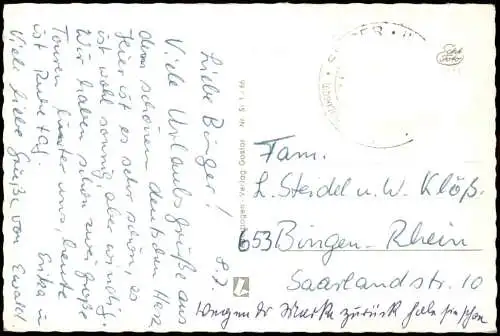 8.7.
Liebe Binger!
Viele Urlaubsgrüße aus
dem schönen deutschen Harz
Hier ist es sehr schön, es
ist wohl sonnig, aber windig.
Wir haben schon zwei große
Touren hinter uns, heute
ist Ruhetag.
Viele liebe Grüße von Ewald
Erika u.
Fam.
L. Steidel u. W. Klöß
653 Bingen-Rhein
Saarlandstr. 10
wegen der Marke zurück habe sie schon
Echt Foto